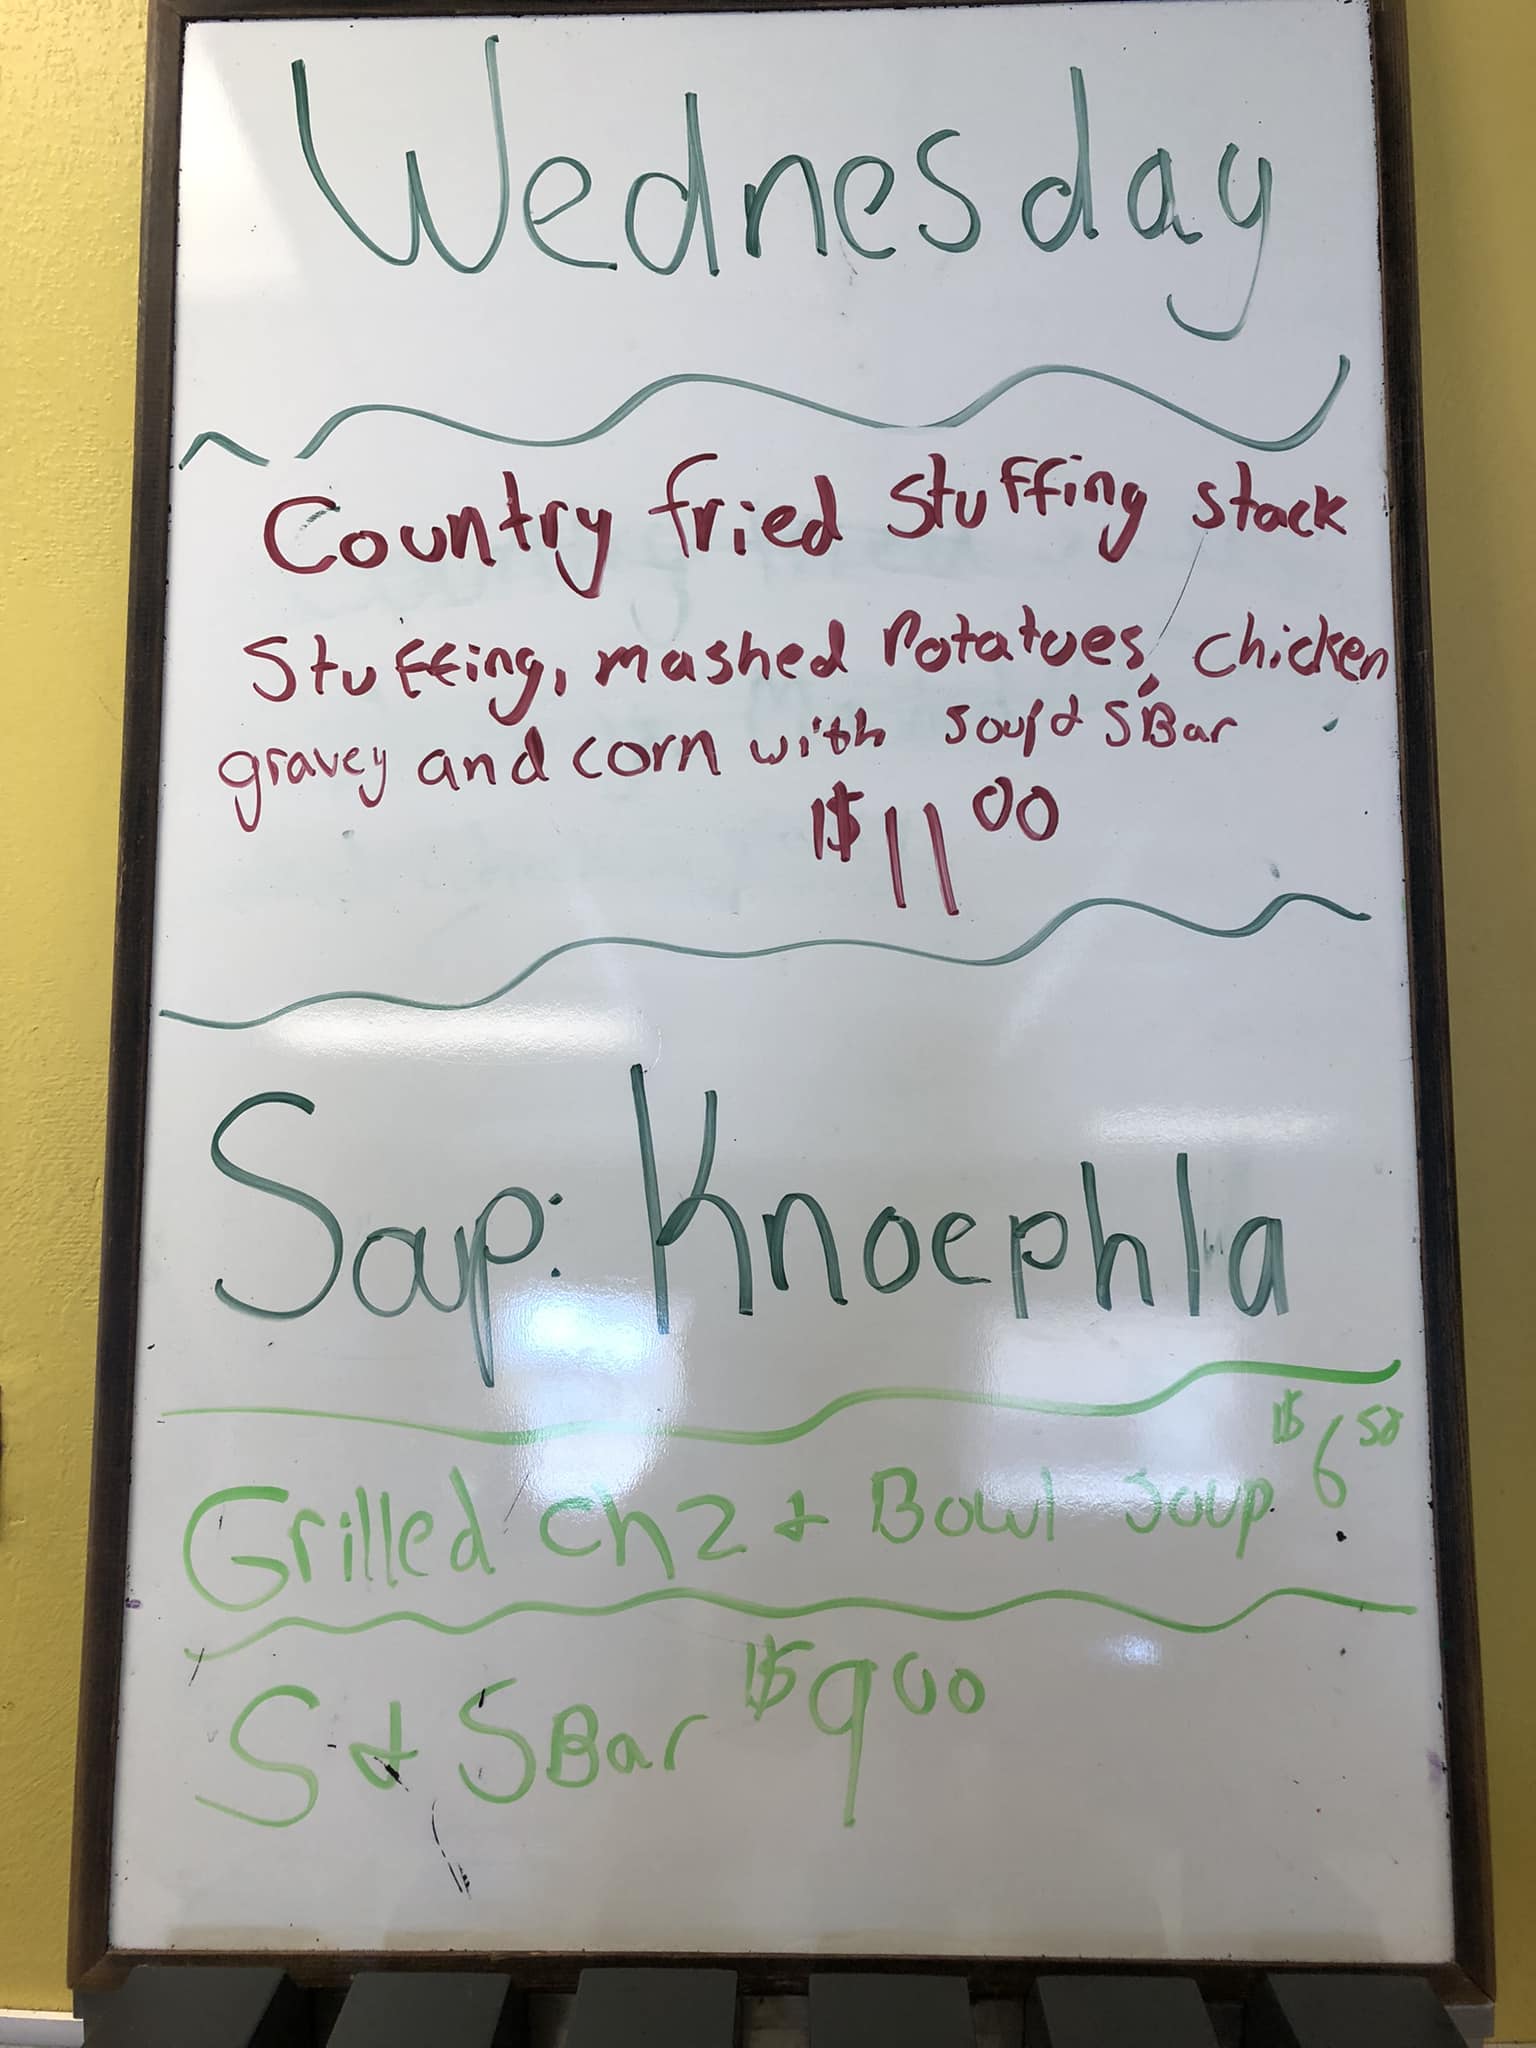 Wednesday
Country fried stuffing stack
Stuffing, mashed Potatoes, chicken
gravey and corn with soup & S Bar
$11 00
Soup: Knoephla
$6 50
Grilled chz & Bowl Soup
S & S Bar $9 00